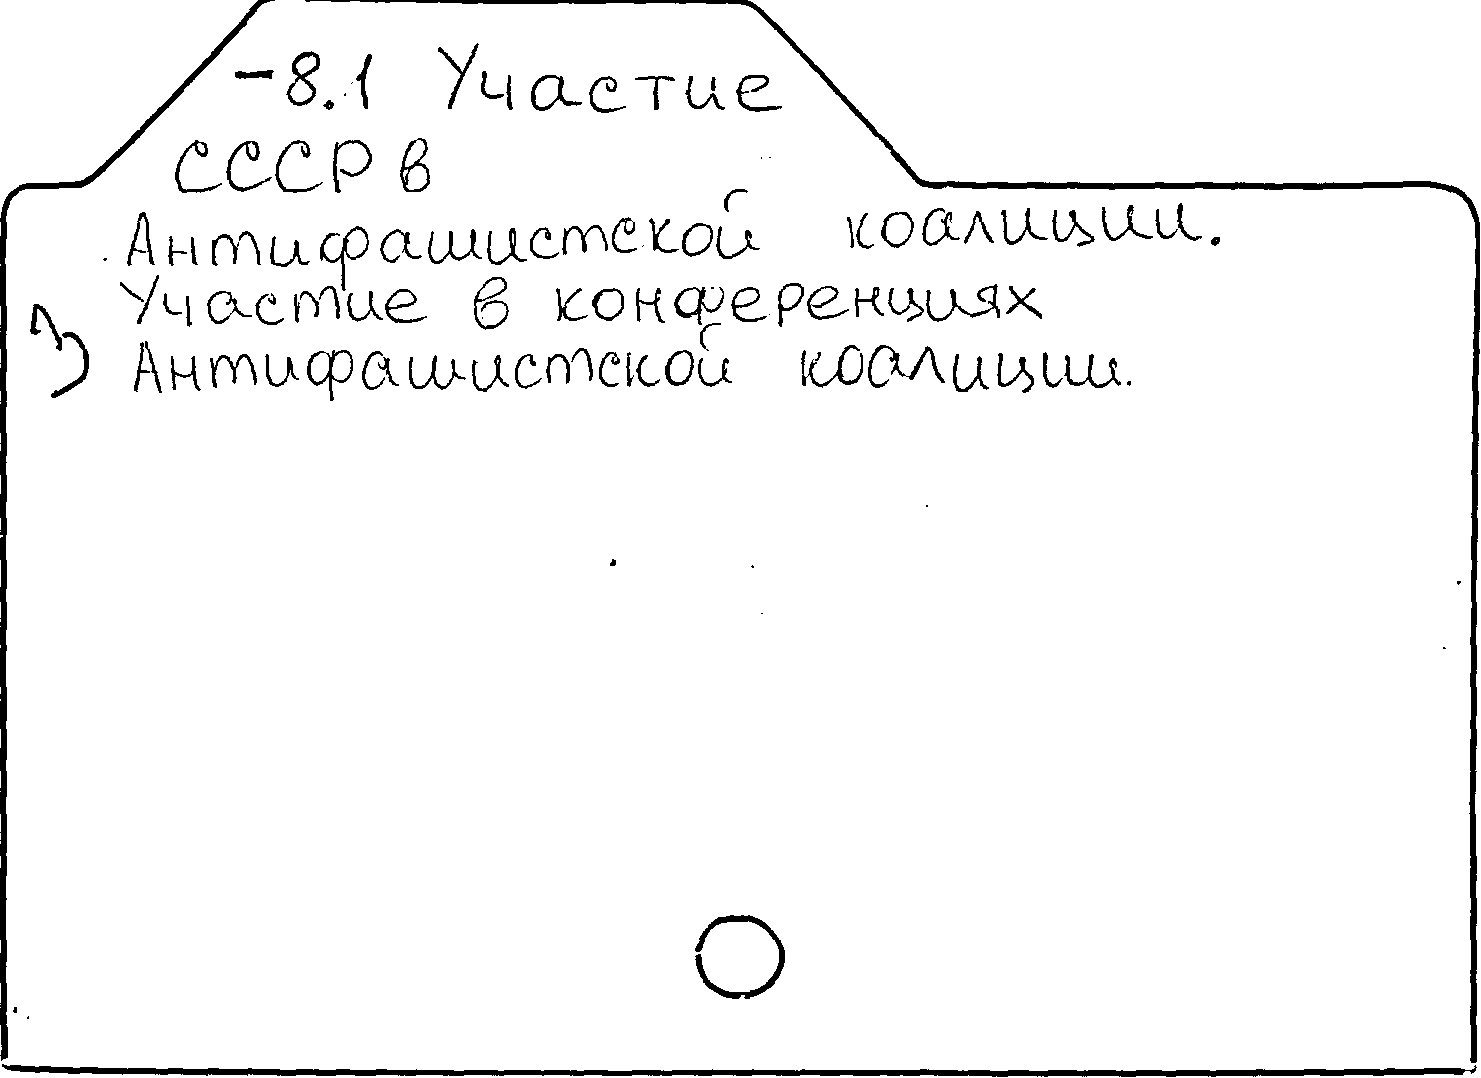 -8.1 Участие
СССР в
Антифашистской коалиции.
Участие в конференциях
Антифашистской коалиции.